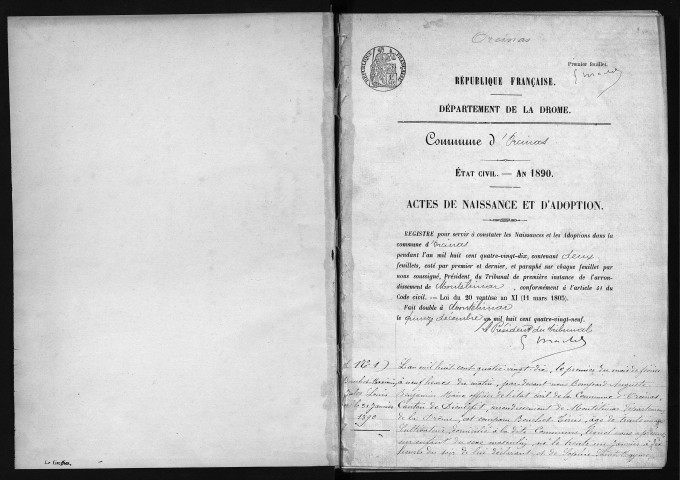 Orcinas
Premier feuillet.
RÉPUBLIQUE FRANÇAISE.
DÉPARTEMENT DE LA DROME.
Commune d'Orcinas
ÉTAT CIVIL. — AN 1890.
ACTES DE NAISSANCE ET D'ADOPTION.
REGISTRE pour servir à constater les Naissances et les Adoptions dans la
commune d'Orcinas
pendant l'an mil huit cent quatre-vingt-dix, contenant deux
feuillets, coté par premier et dernier, et paraphé sur chaque feuillet par
nous soussigné, Président du Tribunal de première instance de l'arron-
dissement de Montélimar, conformément à l'article 41 du
Code civil. — Loi du 20 ventôse an XI (11 mars 1803).
Fait double à Montélimar
le quinze décembre an mil huit cent quatre-vingt-neuf.
Le Président du Tribunal
N° 1
L'an mil huit cent quatre vingt dix, le premier du mois de février
à neuf heures du matin, par devant nous
Maire officier de l'état civil de la Commune d'Orcinas,
Canton de Dieulefit, arrondissement de Montélimar, département
1890
de la Drôme, est comparu
cultivateur domicilié à la dite Commune, lequel nous a présenté
un enfant du sexe masculin, né le trente un janvier à dix
heures du soir de lui déclarant et de
Le Greffier,